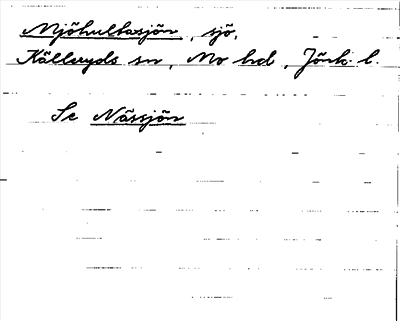 Mjöhultasjön, sjö,
Källeryds sn, Mo hd, Jönk. l.
Se Nässjön